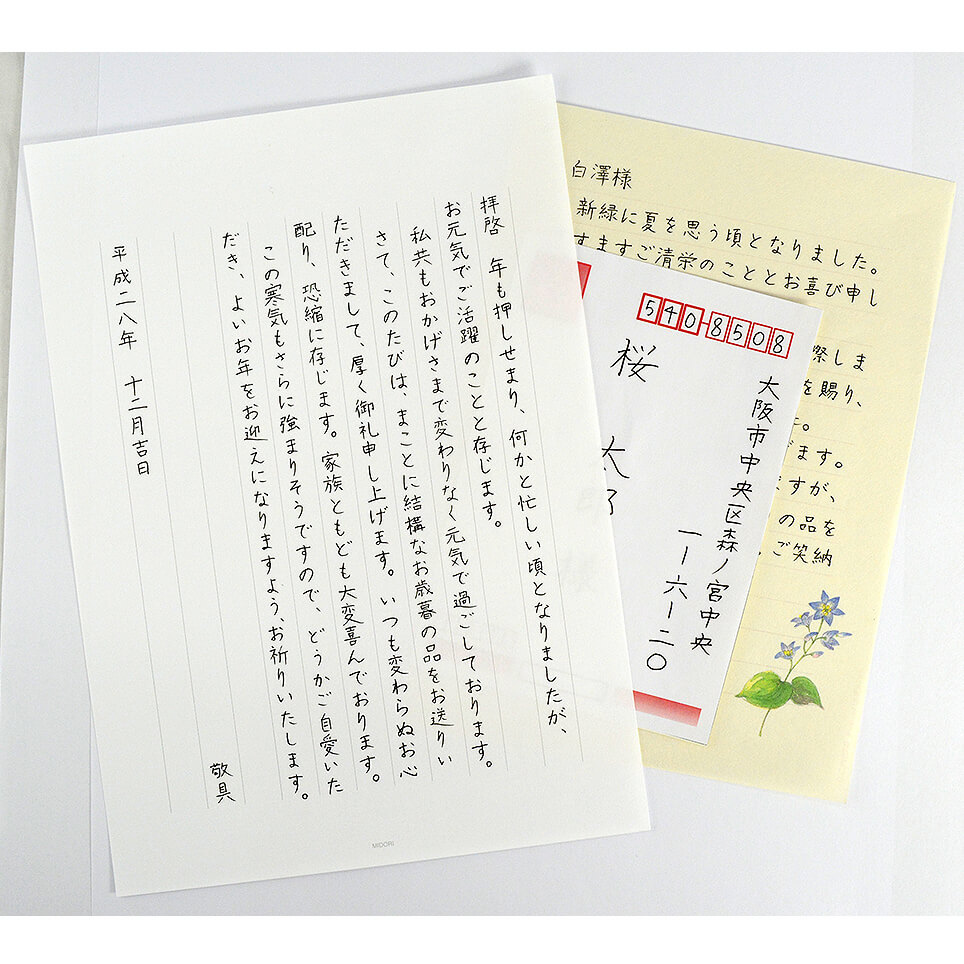 拝啓　年も押しせまり、何かと忙しい頃となりましたが、
お元気でご活躍のことと存じます。
私共もおかげさまで変わりなく元気で過ごしております。
さて、このたびは、まことに結構なお歳暮の品をお送りい
ただきまして、厚く御礼申し上げます。いつも変わらぬお心
配り、恐縮に存じます。家族ともども大変喜んでおります。
この寒気もさらに強まりそうですので、どうかご自愛いた
だき、よいお年をお迎えになりますよう、お祈りいたします。
敬具
平成二八年　十二月吉日
MIDORI
540-8508
大阪市中央区森ノ宮中央
一ー六ー二〇
桜　太郎
白澤様
新緑に夏を思う頃となりました。
すますご清栄のこととお喜び申し
際しま
を賜り、
た。
げます。
ますが、
の品を
ご笑納